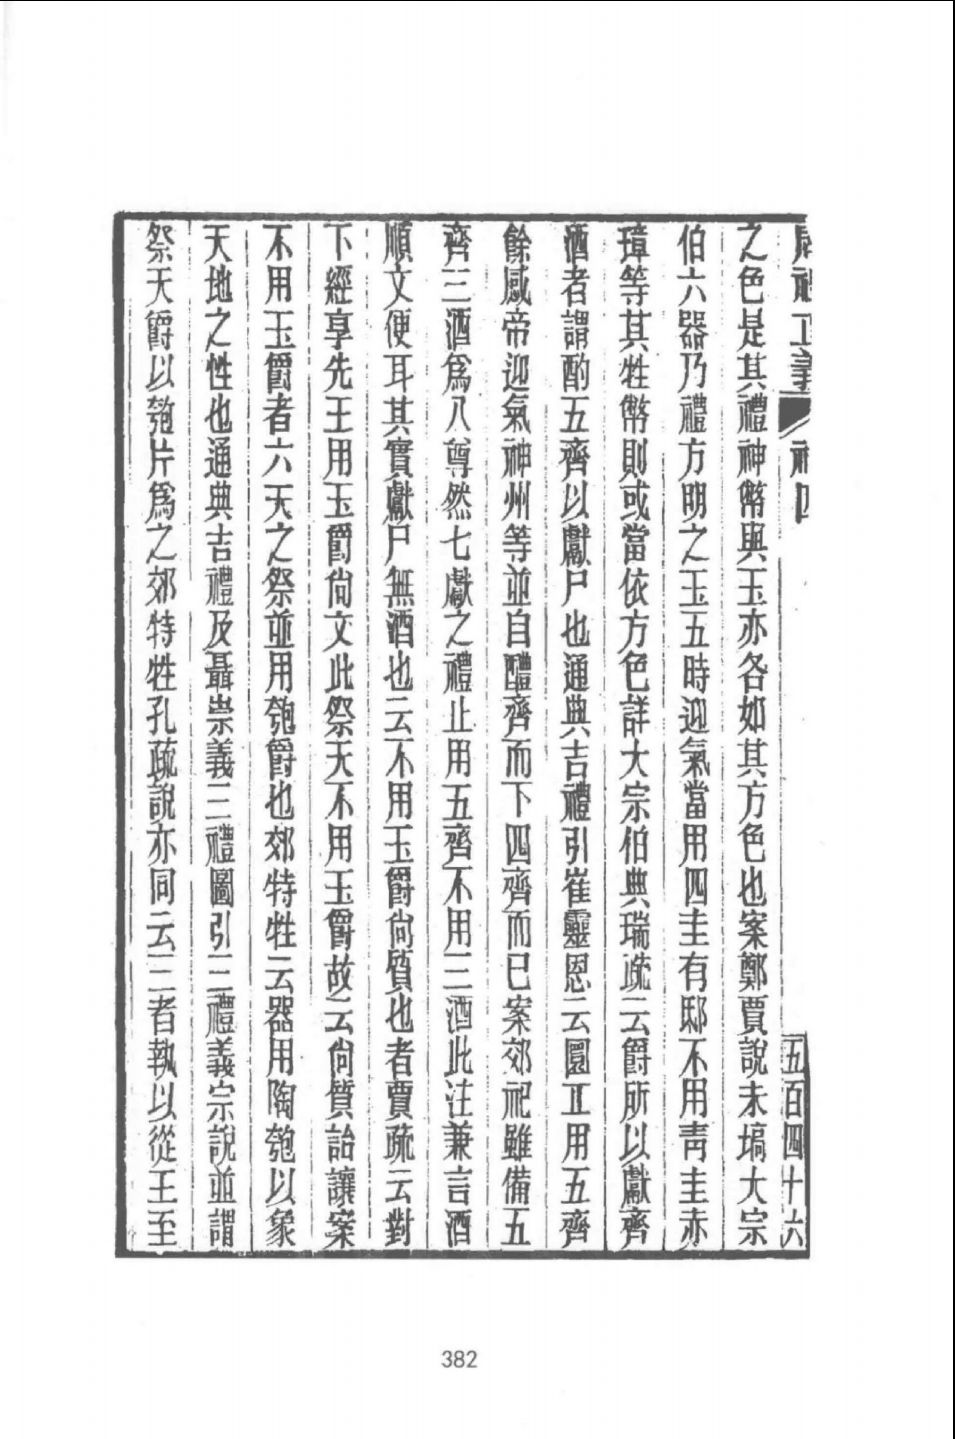 周禮正義　禮四　五百四十六
之色是其禮神幣與玉亦各如其方色也案鄭賈說未塙大宗
伯六器乃禮方明之玉五時迎氣當用四圭有邸不用靑圭赤
璋等其牲幣則或當依方色詳大宗伯典瑞疏云爵所以獻齊
酒者謂酌五齊以獻尸也通典吉禮引崔靈恩云圜丘用五齊
餘感帝迎氣神州等並自醴齊而下四齊而已案郊祀雖備五
齊三酒爲八尊然七獻之禮止用五齊不用三酒此注兼言酒
順文便耳其實獻尸無酒也云不用玉爵尙質也者賈疏云對
下經享先王用玉爵尙文此祭天不用玉爵故云尙質詒讓案
不用玉爵者六天之祭並用匏爵也郊特牲云器用陶匏以象
天地之性也通典吉禮及聶崇義三禮圖引三禮義宗說並謂
祭天爵以匏片爲之郊特牲孔疏說亦同云三者執以從王至
382